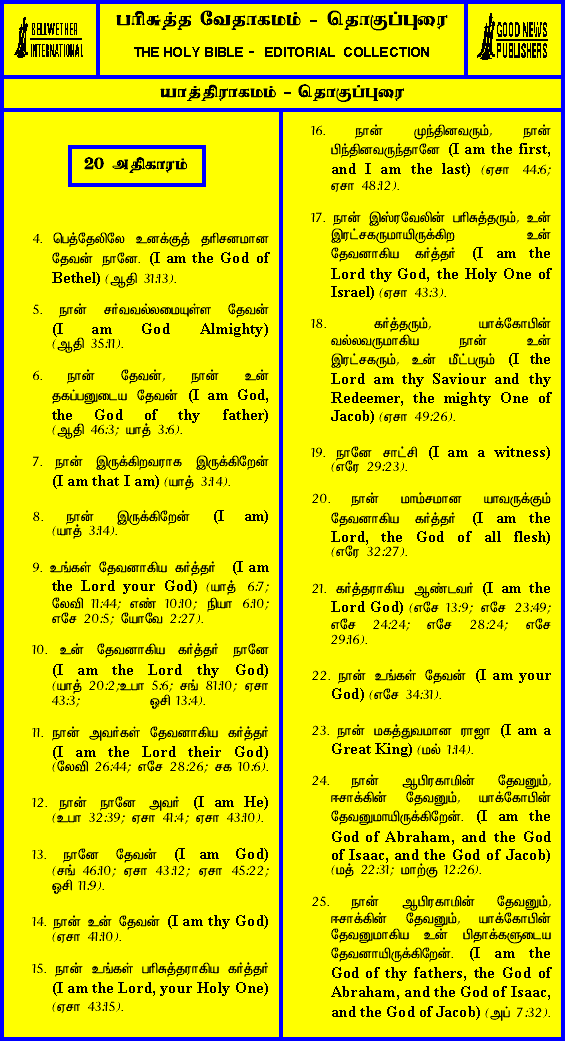 BELLWETHER
INTERNATIONAL
பரிசுத்த வேதாகமம் - தொகுப்புரை
THE HOLY BIBLE - EDITORIAL COLLECTION
GOOD NEWS
PUBLISHERS
யாத்திராகமம் - தொகுப்புரை
20 அதிகாரம்
4. பெத்தேலிலே உனக்குத் தரிசனமான
தேவன் நானே. (I am the God of
Bethel) (ஆதி 31:13).
5. நான் சர்வவல்லமையுள்ள தேவன்
(I am God Almighty)
(ஆதி 35:11).
6. நான் தேவன், நான் உன்
தகப்பனுடைய தேவன் (I am God,
the God of thy father)
(ஆதி 46:3; யாத் 3:6).
7. நான் இருக்கிறவராக இருக்கிறேன்
(I am that I am) (யாத் 3:14).
8. நான் இருக்கிறேன் (I am)
(யாத் 3:14).
9. உங்கள் தேவனாகிய கர்த்தர் (I am
the Lord your God) (யாத் 6:7;
லேவி 11:44; எண் 10:10; நியா 6:10;
எசே 20:5; யோவே 2:27).
10. உன் தேவனாகிய கர்த்தர் நானே
(I am the Lord thy God)
(யாத் 20:2;உபா 5:6; சங் 81:10; ஏசா
43:3; ஓசி 13:4).
11. நான் அவர்கள் தேவனாகிய கர்த்தர்
(I am the Lord their God)
(லேவி 26:44; எசே 28:26; சக 10:6).
12. நான் நானே அவர் (I am He)
(உபா 32:39; ஏசா 41:4; ஏசா 43:10).
13. நானே தேவன் (I am God)
(சங் 46:10; ஏசா 43:12; ஏசா 45:22;
ஓசி 11:9).
14. நான் உன் தேவன் (I am thy God)
(ஏசா 41:10).
15. நான் உங்கள் பரிசுத்தராகிய கர்த்தர்
(I am the Lord, your Holy One)
(ஏசா 43:15).
16. நான் முந்தினவரும், நான்
பிந்தினவருந்தானே (I am the first,
and I am the last) (ஏசா 44:6;
ஏசா 48:12).
17. நான் இஸ்ரவேலின் பரிசுத்தரும், உன்
இரட்சகருமாயிருக்கிற உன்
தேவனாகிய கர்த்தர் (I am the
Lord thy God, the Holy One of
Israel) (ஏசா 43:3).
18. கர்த்தரும், யாக்கோபின்
வல்லவருமாகிய நான் உன்
இரட்சகரும், உன் மீட்பரும் (I the
Lord am thy Saviour and thy
Redeemer, the mighty One of
Jacob) (ஏசா 49:26).
19. நானே சாட்சி (I am a witness)
(எரே 29:23).
20. நான் மாம்சமான யாவருக்கும்
தேவனாகிய கர்த்தர் (I am the
Lord, the God of all flesh)
(எரே 32:27).
21. கர்த்தராகிய ஆண்டவர் (I am the
Lord God) (எசே 13:9; எசே 23:49;
எசே 24:24; எசே 28:24; எசே
29:16).
22. நான் உங்கள் தேவன் (I am your
God) (எசே 34:31).
23. நான் மகத்துவமான ராஜா (I am a
Great King) (மல் 1:14).
24. நான் ஆபிரகாமின் தேவனும்,
ஈசாக்கின் தேவனும், யாக்கோபின்
தேவனுமாயிருக்கிறேன். (I am the
God of Abraham, and the God
of Isaac, and the God of Jacob)
(மத் 22:31; மாற்கு 12:26).
25. நான் ஆபிரகாமின் தேவனும்,
ஈசாக்கின் தேவனும், யாக்கோபின்
தேவனுமாகிய உன் பிதாக்களுடைய
தேவனாயிருக்கிறேன். (I am the
God of thy fathers, the God of
Abraham, and the God of Isaac,
and the God of Jacob) (அப் 7:32).